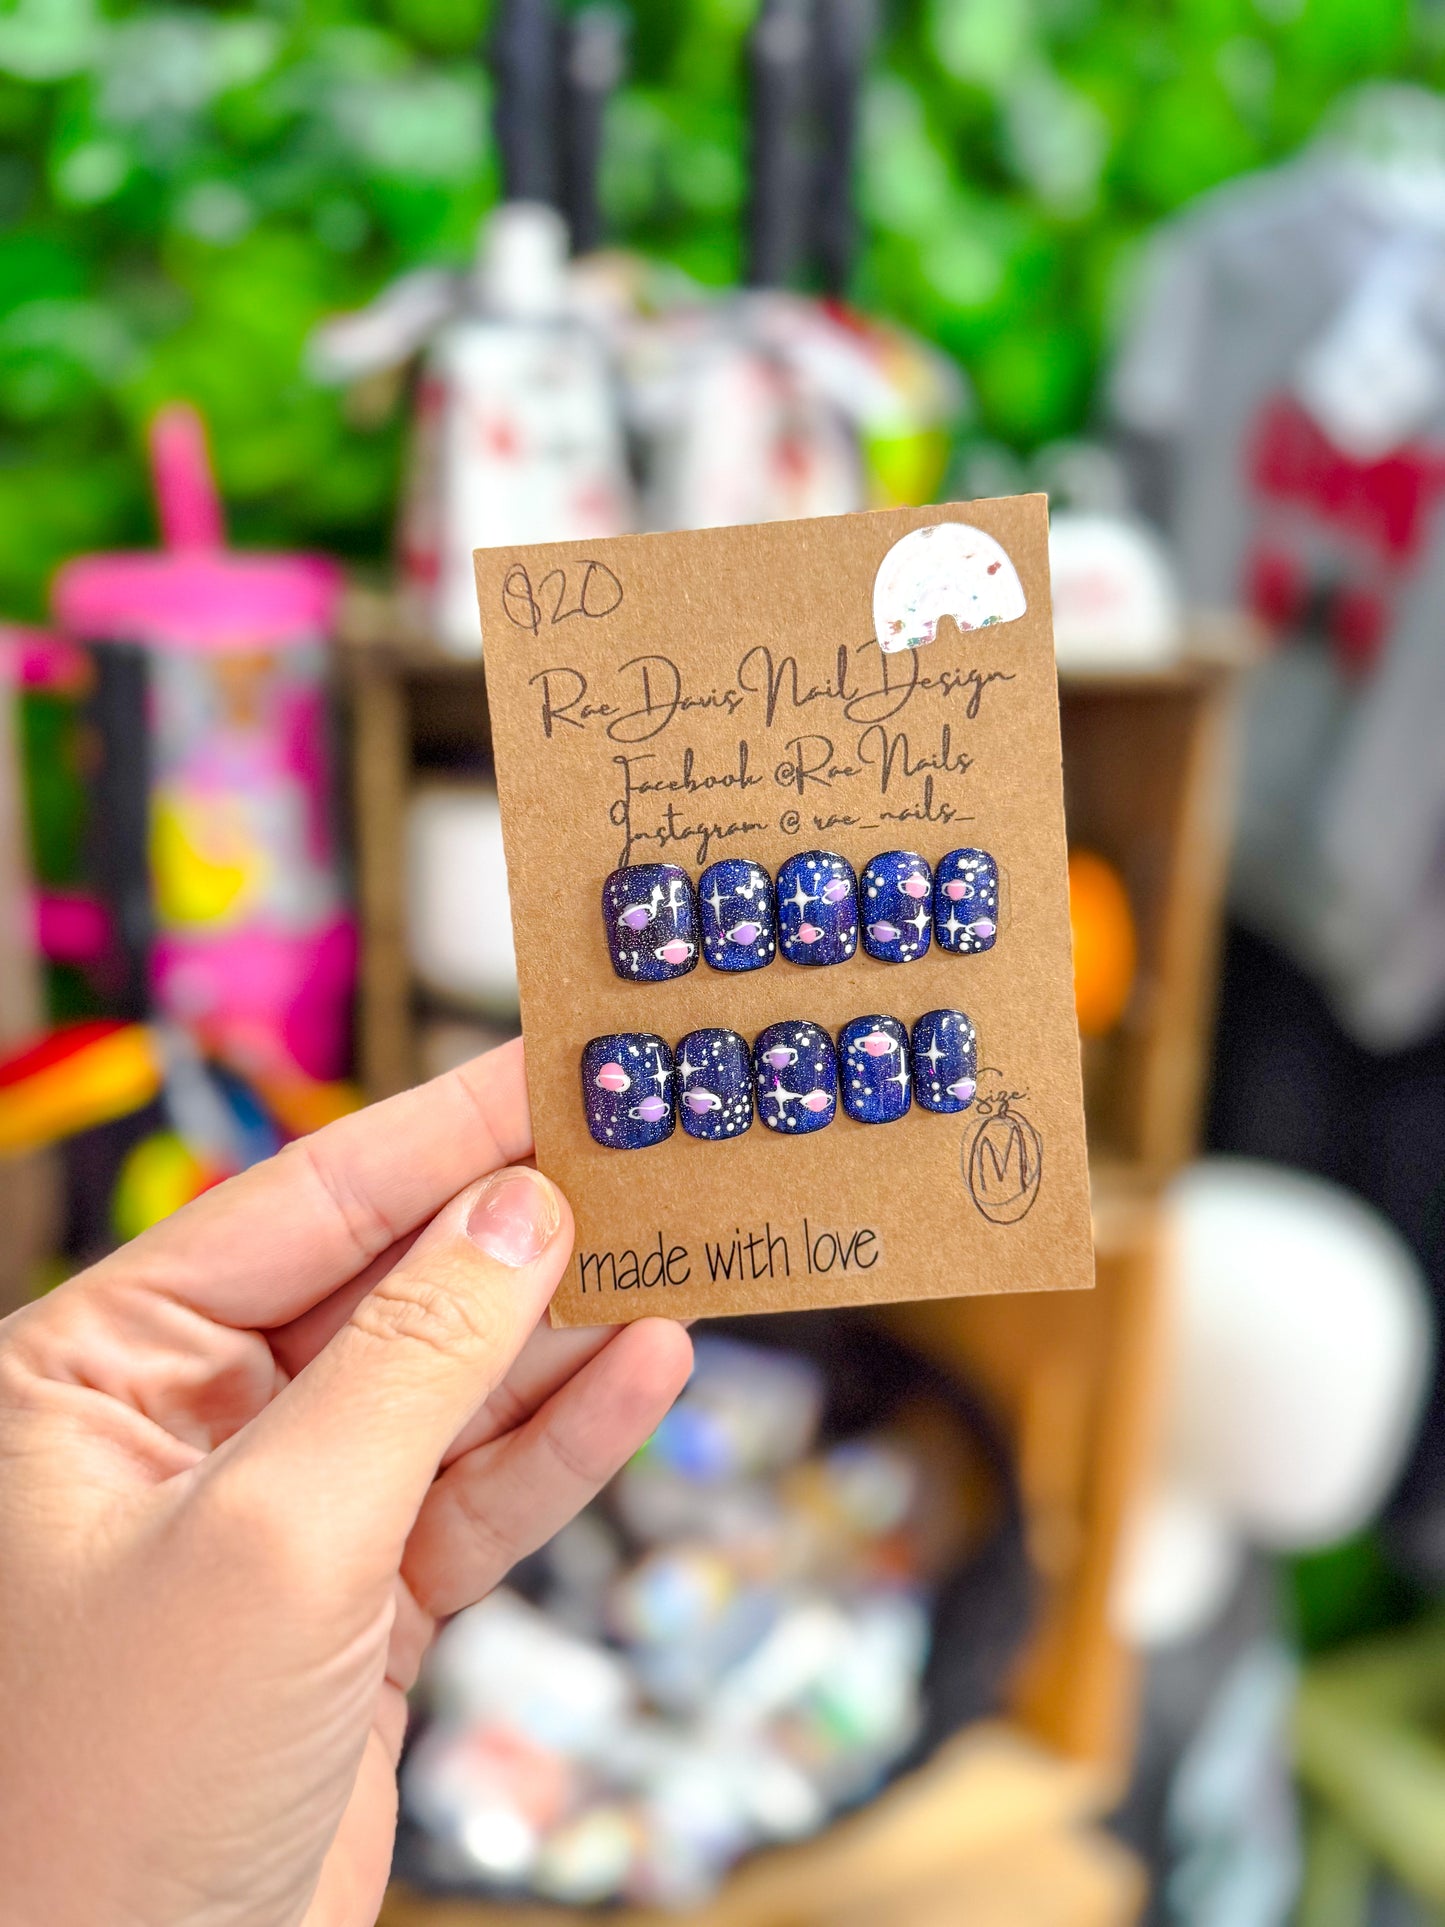 $20
Rae Davis Nail Design
Facebook @Rae Nails
Instagram @ rae_nails_
Size:
M
made with love